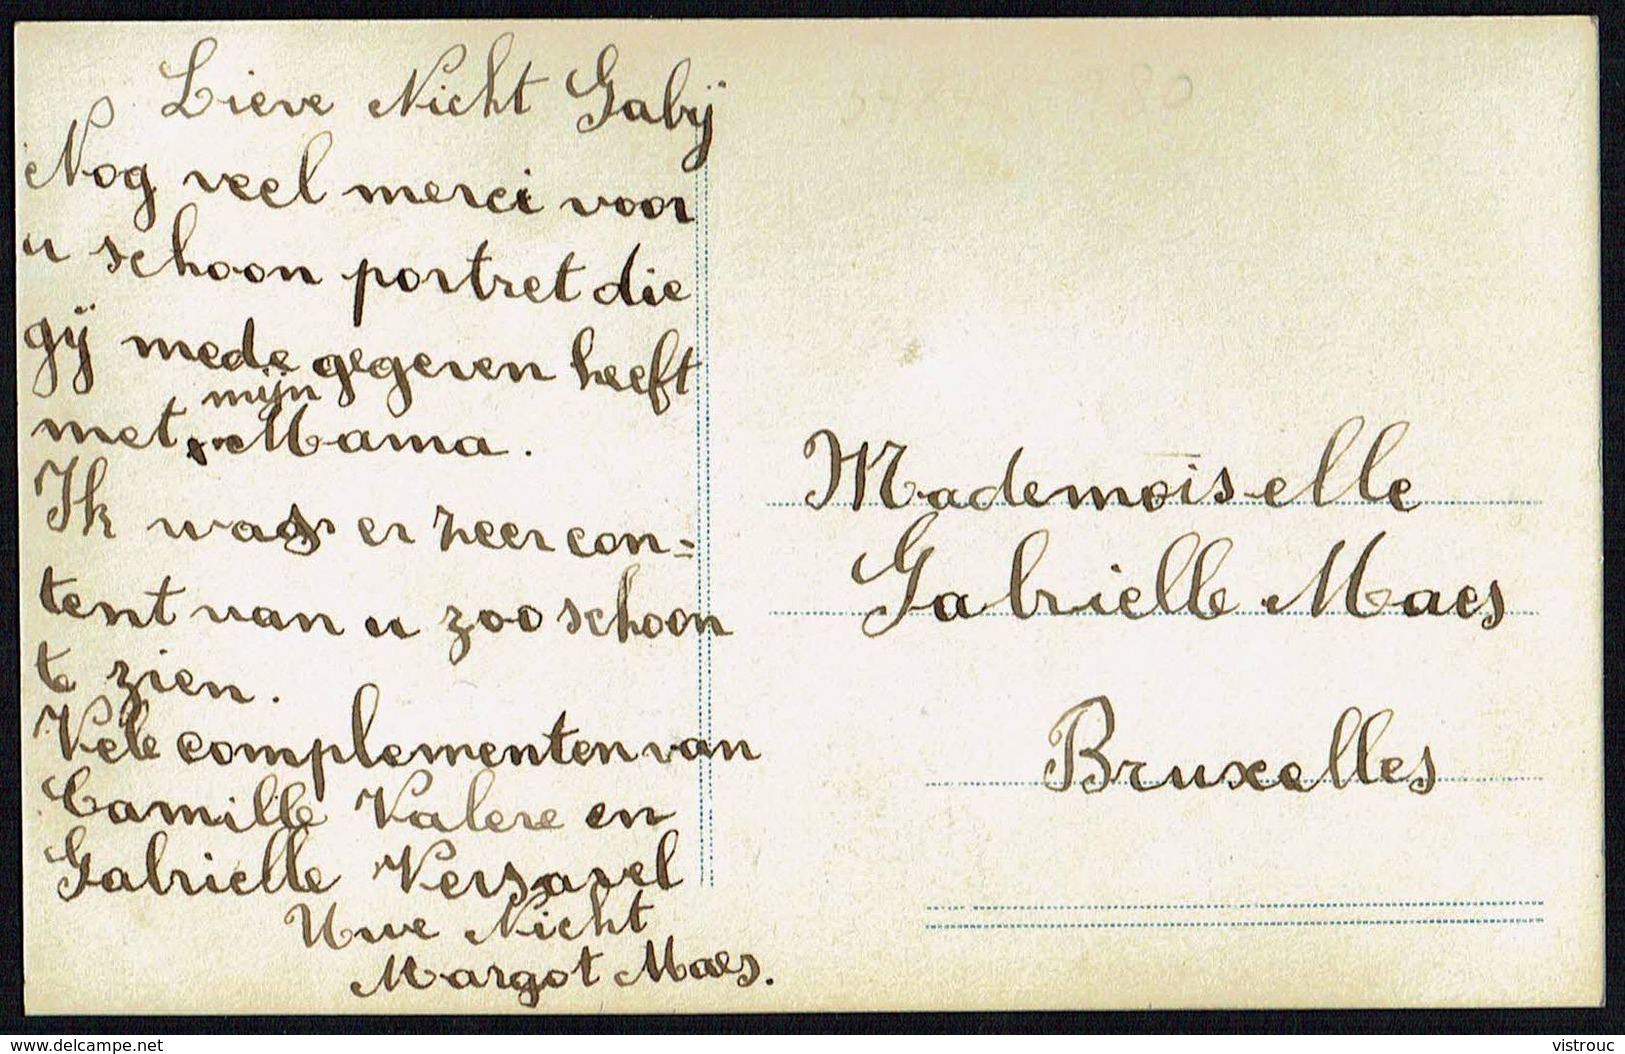 Lieve Nicht Gabÿ
Nog veel merci voor
u schoon portret die
gÿ mede gegeven heeft
mijn
met Mama.
Ik was er zeer con=
tent van u zoo schoon
te zien.
Vele complementen van
Camille Valere en
Gabrielle Versavel
Uwe Nicht
Margot Maes.
Mademoiselle
Gabrielle Maes
Bruxelles
www.delcampe.net
vistrouc